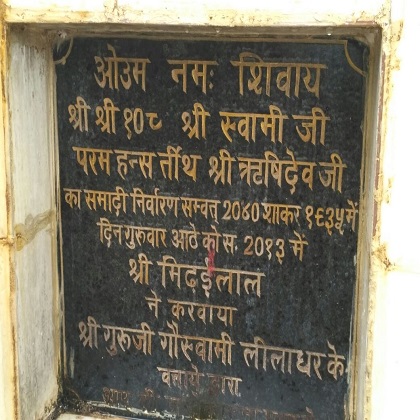 ओउम नमः शिवाय
श्री श्री १०८ श्री स्वामी जी
परम हन्स तीर्थ श्री ऋषिदेव जी
का समाढ़ी निर्वारण सम्वत् २०४० शाकर १९३५ में
दिन गुरुवार आठै को स. २०१३ में
श्री मिढईलाल
ने करवाया
श्री गुरूजी गौस्वामी लीलाधर के
द्वारा